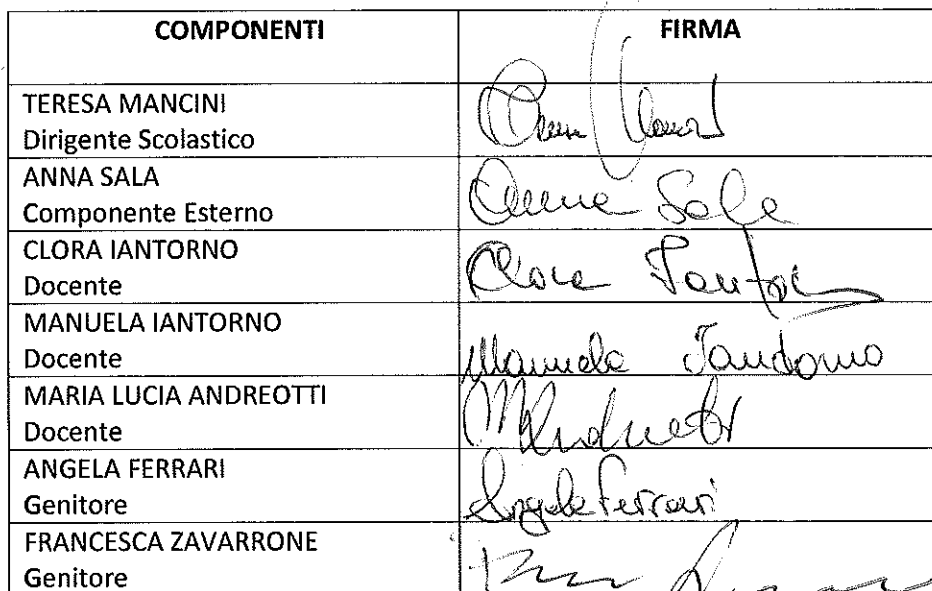 COMPONENTI FIRMA
TERESA MANCINI
Dirigente Scolastico
ANNA SALA
Componente Esterno
Sala
CLORA IANTORNO
Docente
Clora
MANUELA IANTORNO
Docente
Manuela Iantorno
MARIA LUCIA ANDREOTTI
Docente
ANGELA FERRARI
Genitore
Angela Ferrari
FRANCESCA ZAVARRONE
Genitore